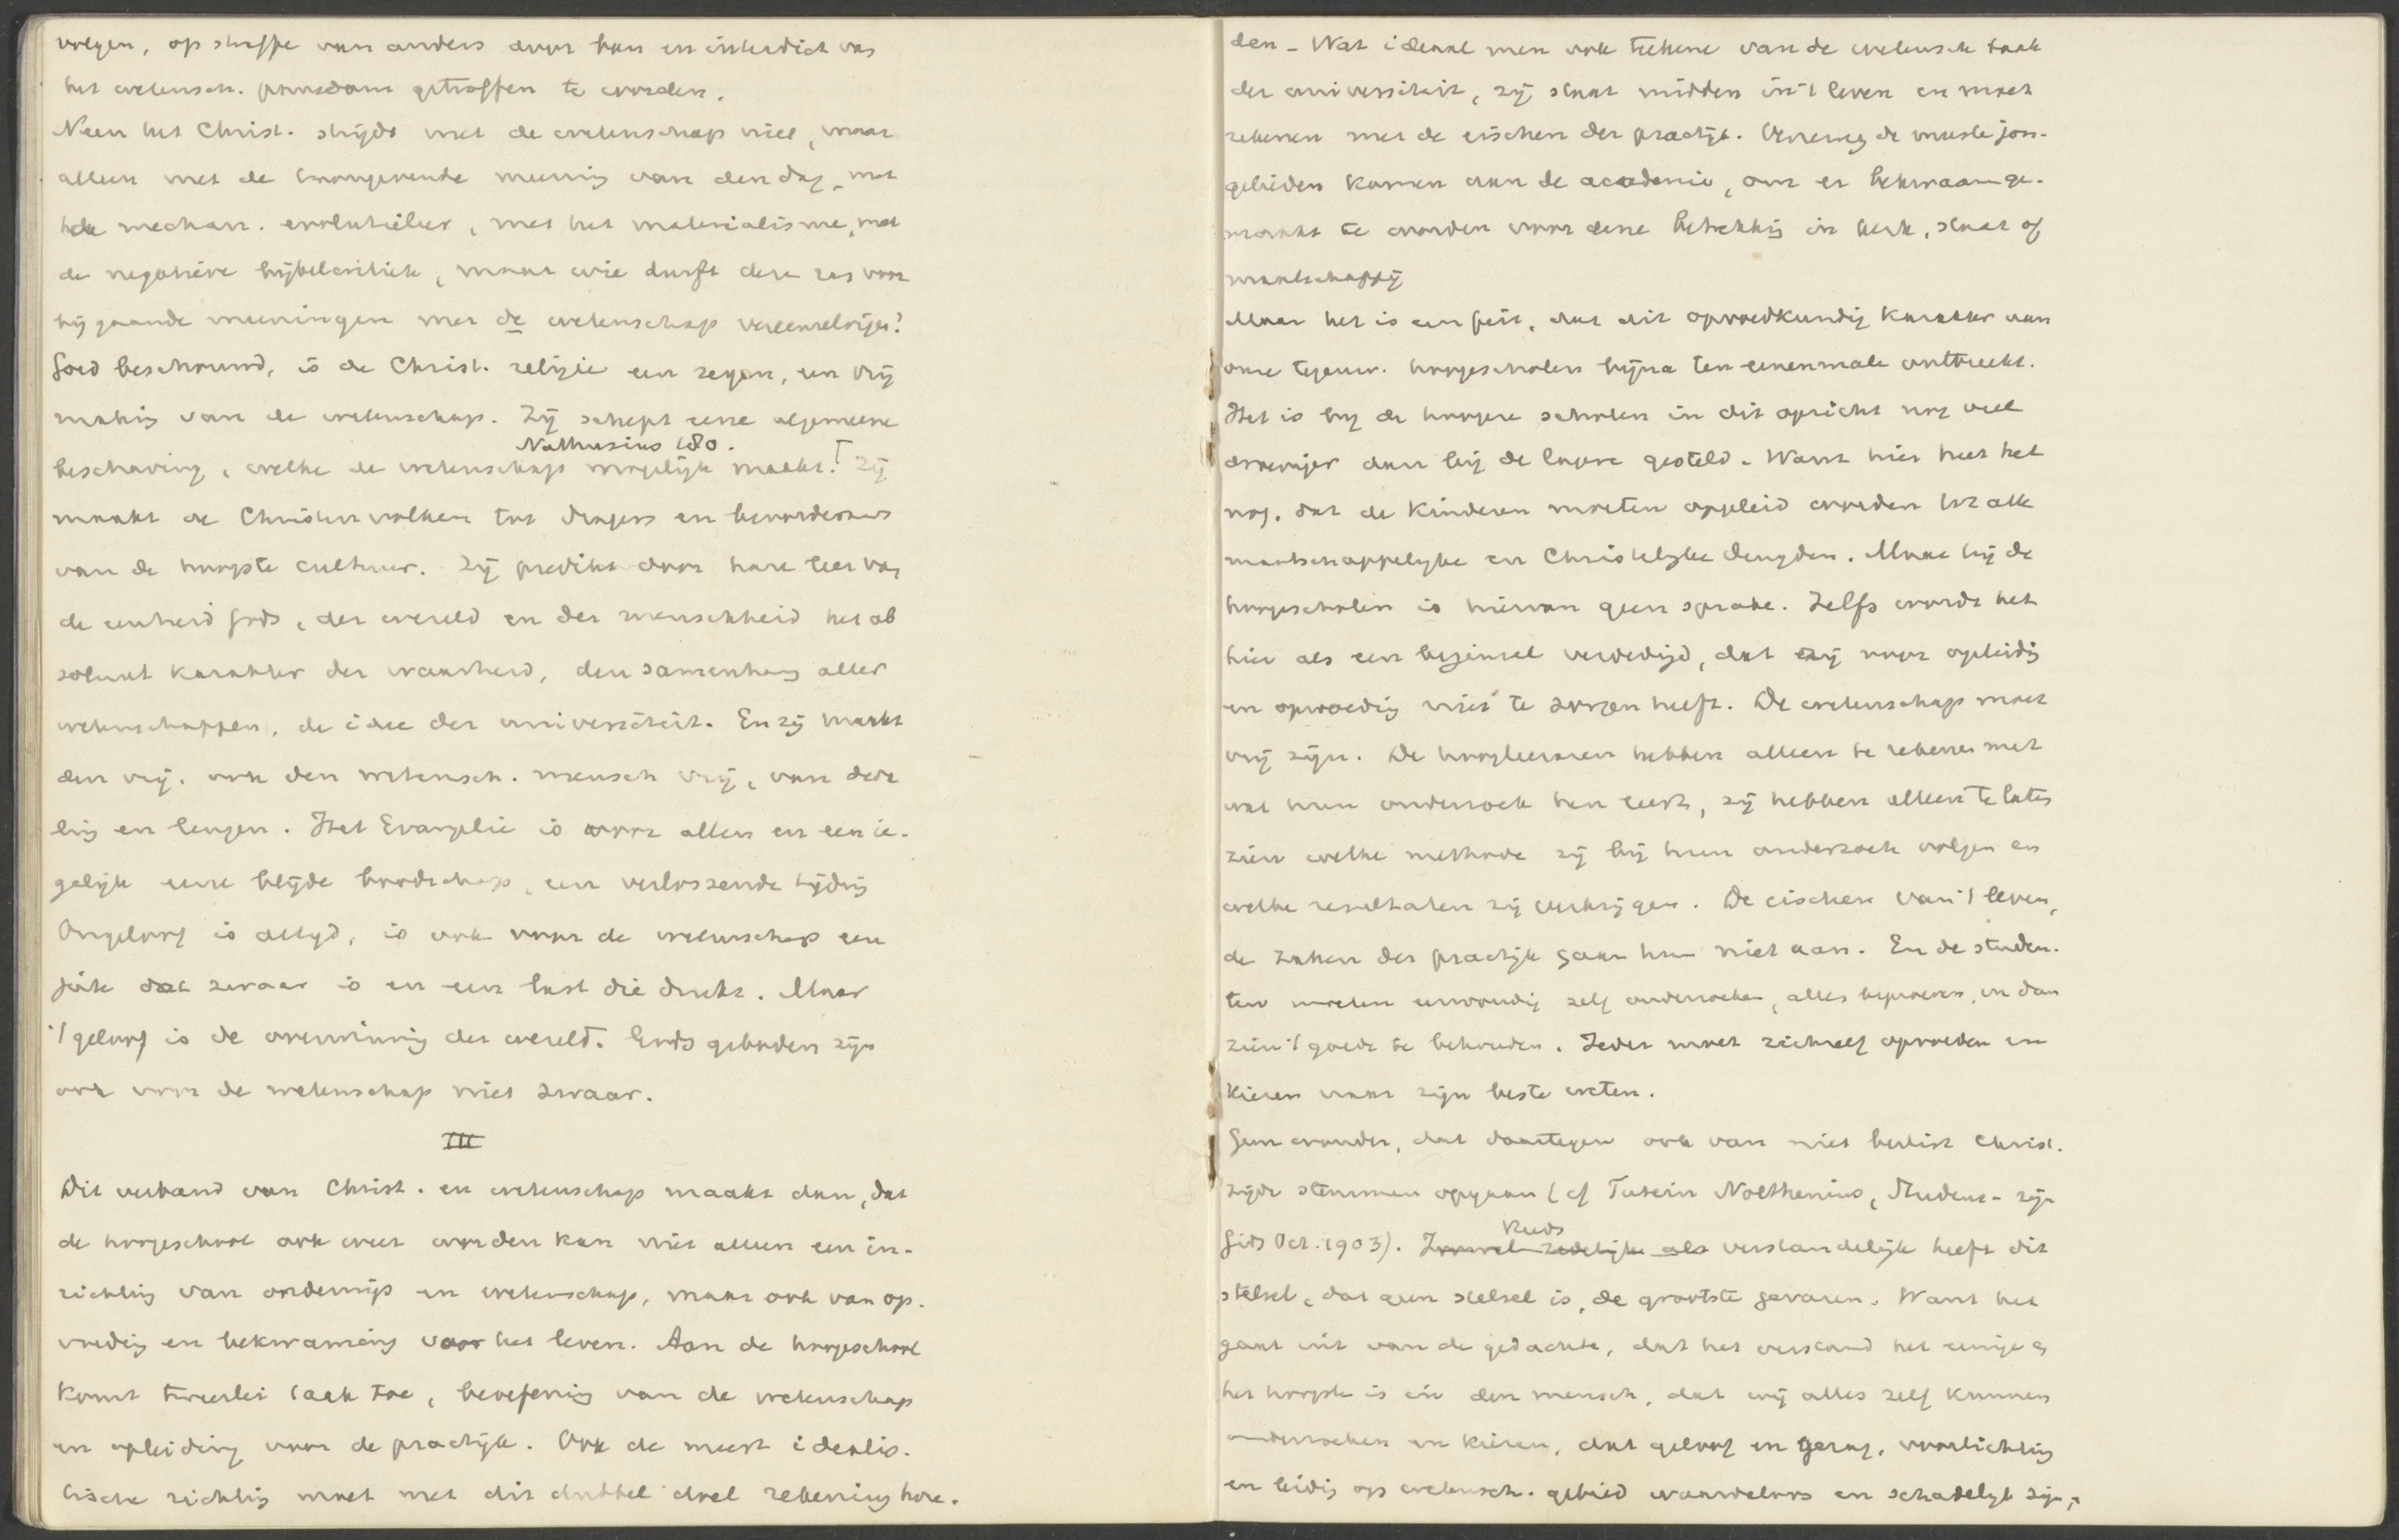 volgen, op straffe van anders door ban en interdict van
het wetensch. pausdom getroffen te worden.
Neen het Christ. strijdt met de wetenschap niet, maar
alleen met de heerschende meening van den dag, met
de mechan. evolutieleer, met het materialisme, met
de negatieve bijbelcritiek, maar wie durft deze ras voor
bij gaande meeningen met de wetenschap vereenzelvigen?
Goed beschouwd, is de Christ. religie een zegen, een vrij
making van de wetenschap. Zij schept eene algemeene
Nathusius 180.
beschaving, welke de wetenschap mogelijk maakt. Zij
maakt de Christenvolken tot dragers en bevorderaars
van de hoogste cultuur. Zij predikt door hare leer van
de eenheid Gods, der wereld en der menschheid het ab
soluut karakter der waarheid, den samenhang aller
wetenschappen, de idee der universiteit. En zij maakt
den vrij, ook den wetensch. mensch vrij, van dwa
ling en leugen. Het Evangelie is voor allen en een ie-
gelijk eene blijde boodschap, een verlossende tijding
Ongeloof is altijd, is ook voor de wetenschap een
juk dat zwaar is en een last die drukt. Maar
't geloof is de overwinning der wereld. Gods geboden zijn
ook voor de wetenschap niet zwaar.
III
Dit verband van Christ. en wetenschap maakt dan, dat
de hoogeschool ook weer worden kan niet alleen een in-
richting van onderwijs en wetenschap, maar ook van op-
voeding en bekwaming voor het leven. Aan de hoogeschool
komt tweeërlei taak toe, beoefening van de wetenschap
en opleiding voor de practijk. Ook de meest idealis-
tische richting moet met dit dubbel doel rekening hou-
den. Wat ideaal men ook teekene van de wetensch taak
der universiteit, zij staat midden in 't leven en moet
rekenen met de eischen der practijk. Verreweg de meeste jon-
gelieden komen aan de academie, om er bekwaam ge-
maakt te worden voor eene betrekking in kerk, staat of
maatschappij
Maar het is een feit, dat dit opvoedkundig karakter aan
onze tegenw. hoogescholen bijna ten eenenmale ontbreekt.
Het is bij de hoogere scholen in dit opzicht nog veel
droeviger dan bij de lagere gesteld. Want hier heet het
nog, dat de kinderen moeten opgeleid worden tot alle
maatschappelijke en Christelijke deugden. Maar bij de
hoogescholen is hiervan geen sprake. Zelfs wordt het
hier als een beginsel verdedigd, dat zij voor opleiding
en opvoeding niet te zorgen heeft. De wetenschap moet
vrij zijn. De hoogleeraren hebben alleen te rekenen met
wat hun onderzoek hen leert, zij hebben alleen te laten
zien welke methode zij bij hun onderzoek volgen en
welke resultaten zij verkrijgen. De eischen van 't leven,
de zaken der practijk gaan hun niet aan. En de studen-
ten moeten eenvoudig zelf onderzoeken, alles beproeven, en dan
zien 't goede te behouden. Ieder moet zichzelf opvoeden en
kiezen naar zijn beste weten.
Geen wonder, dat daartegen ook van niet beslist Christ.
zijde stemmen opgaan (cf Tutein Nolthenius, Studeer- zijn
Gids Oct. 1903). Zoowel zedelijk als Reeds verstandelijk heeft dit
stelsel, dat geen stelsel is, de grootste gevaren. Want het
gaat uit van de gedachte, dat het verstand het eenige en
het hoogste is in den mensch, dat wij alles zelf kunnen
onderzoeken en kiezen, dat geloof en gezag, voorlichting
en leiding op wetensch. gebied waardeloos en schadelijk zijn,